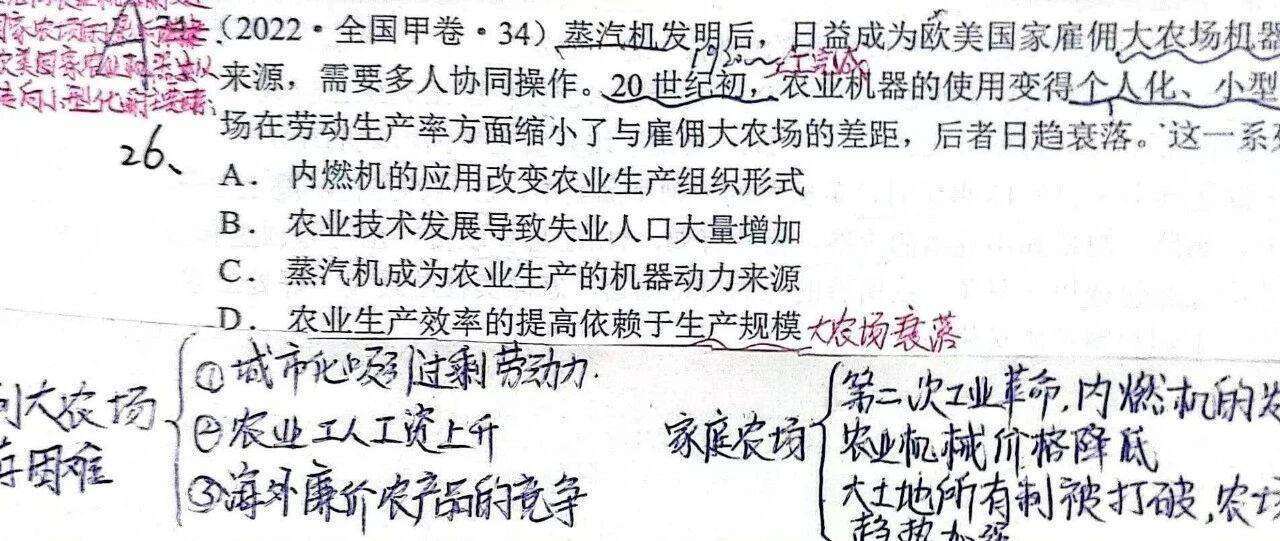 (2022·全国甲卷·34)蒸汽机发明后，日益成为欧美国家雇佣大农场机器
来源，需要多人协同操作。20世纪初，农业机器的使用变得个人化、小型
场在劳动生产率方面缩小了与雇佣大农场的差距，后者日趋衰落。这一系
26、
A. 内燃机的应用改变农业生产组织形式
B. 农业技术发展导致失业人口大量增加
C. 蒸汽机成为农业生产的机器动力来源
D. 农业生产效率的提高依赖于生产规模 大农场衰落
大农场
困难
①城市化吸引过剩劳动力.
②农业工人工资上升
③海外廉价农产品的竞争
家庭农场
第二次工业革命,内燃机的发
农业机械价格降低
大土地所有制被打破,农场
趋势加强